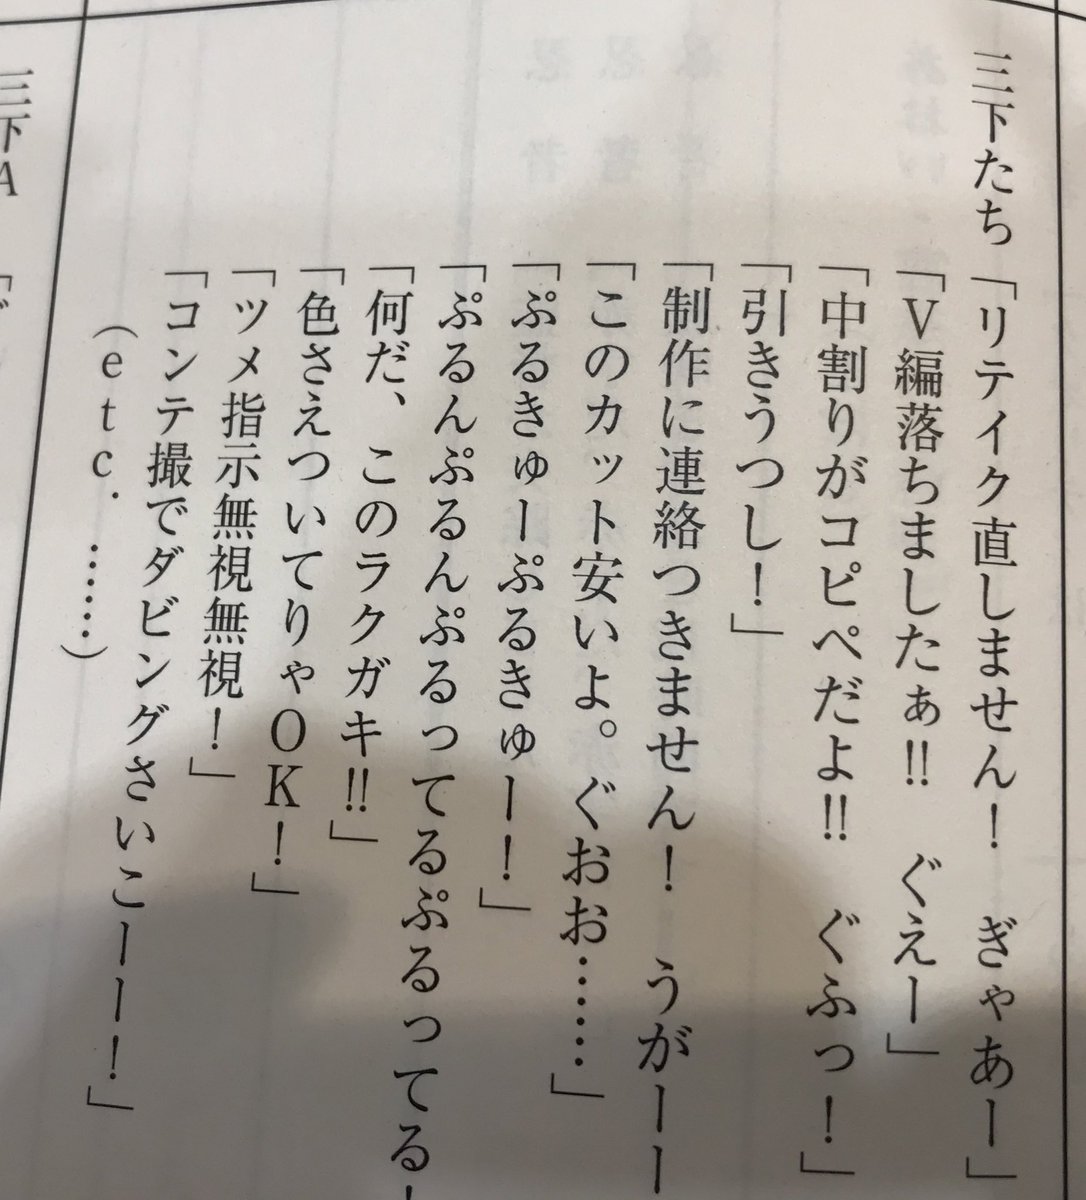 三下たち「リテイク直しません！　ぎゃあー」
「Ｖ編落ちましたぁ!!　ぐえー」
「中割りがコピペだよ!!　ぐふっ！」
「引きうつし！」
「制作に連絡つきません！　うがーー
「このカット安いよ。ぐおお……」
「ぷるきゅーぷるきゅー！」
「ぷるんぷるんぷるってるぷるってる！
「何だ、このラクガキ!!」
「色さえついてりゃＯＫ！」
「ツメ指示無視無視！」
「コンテ撮でダビングさいこーー！」
（ｅｔｃ．……）
三下Ａ「